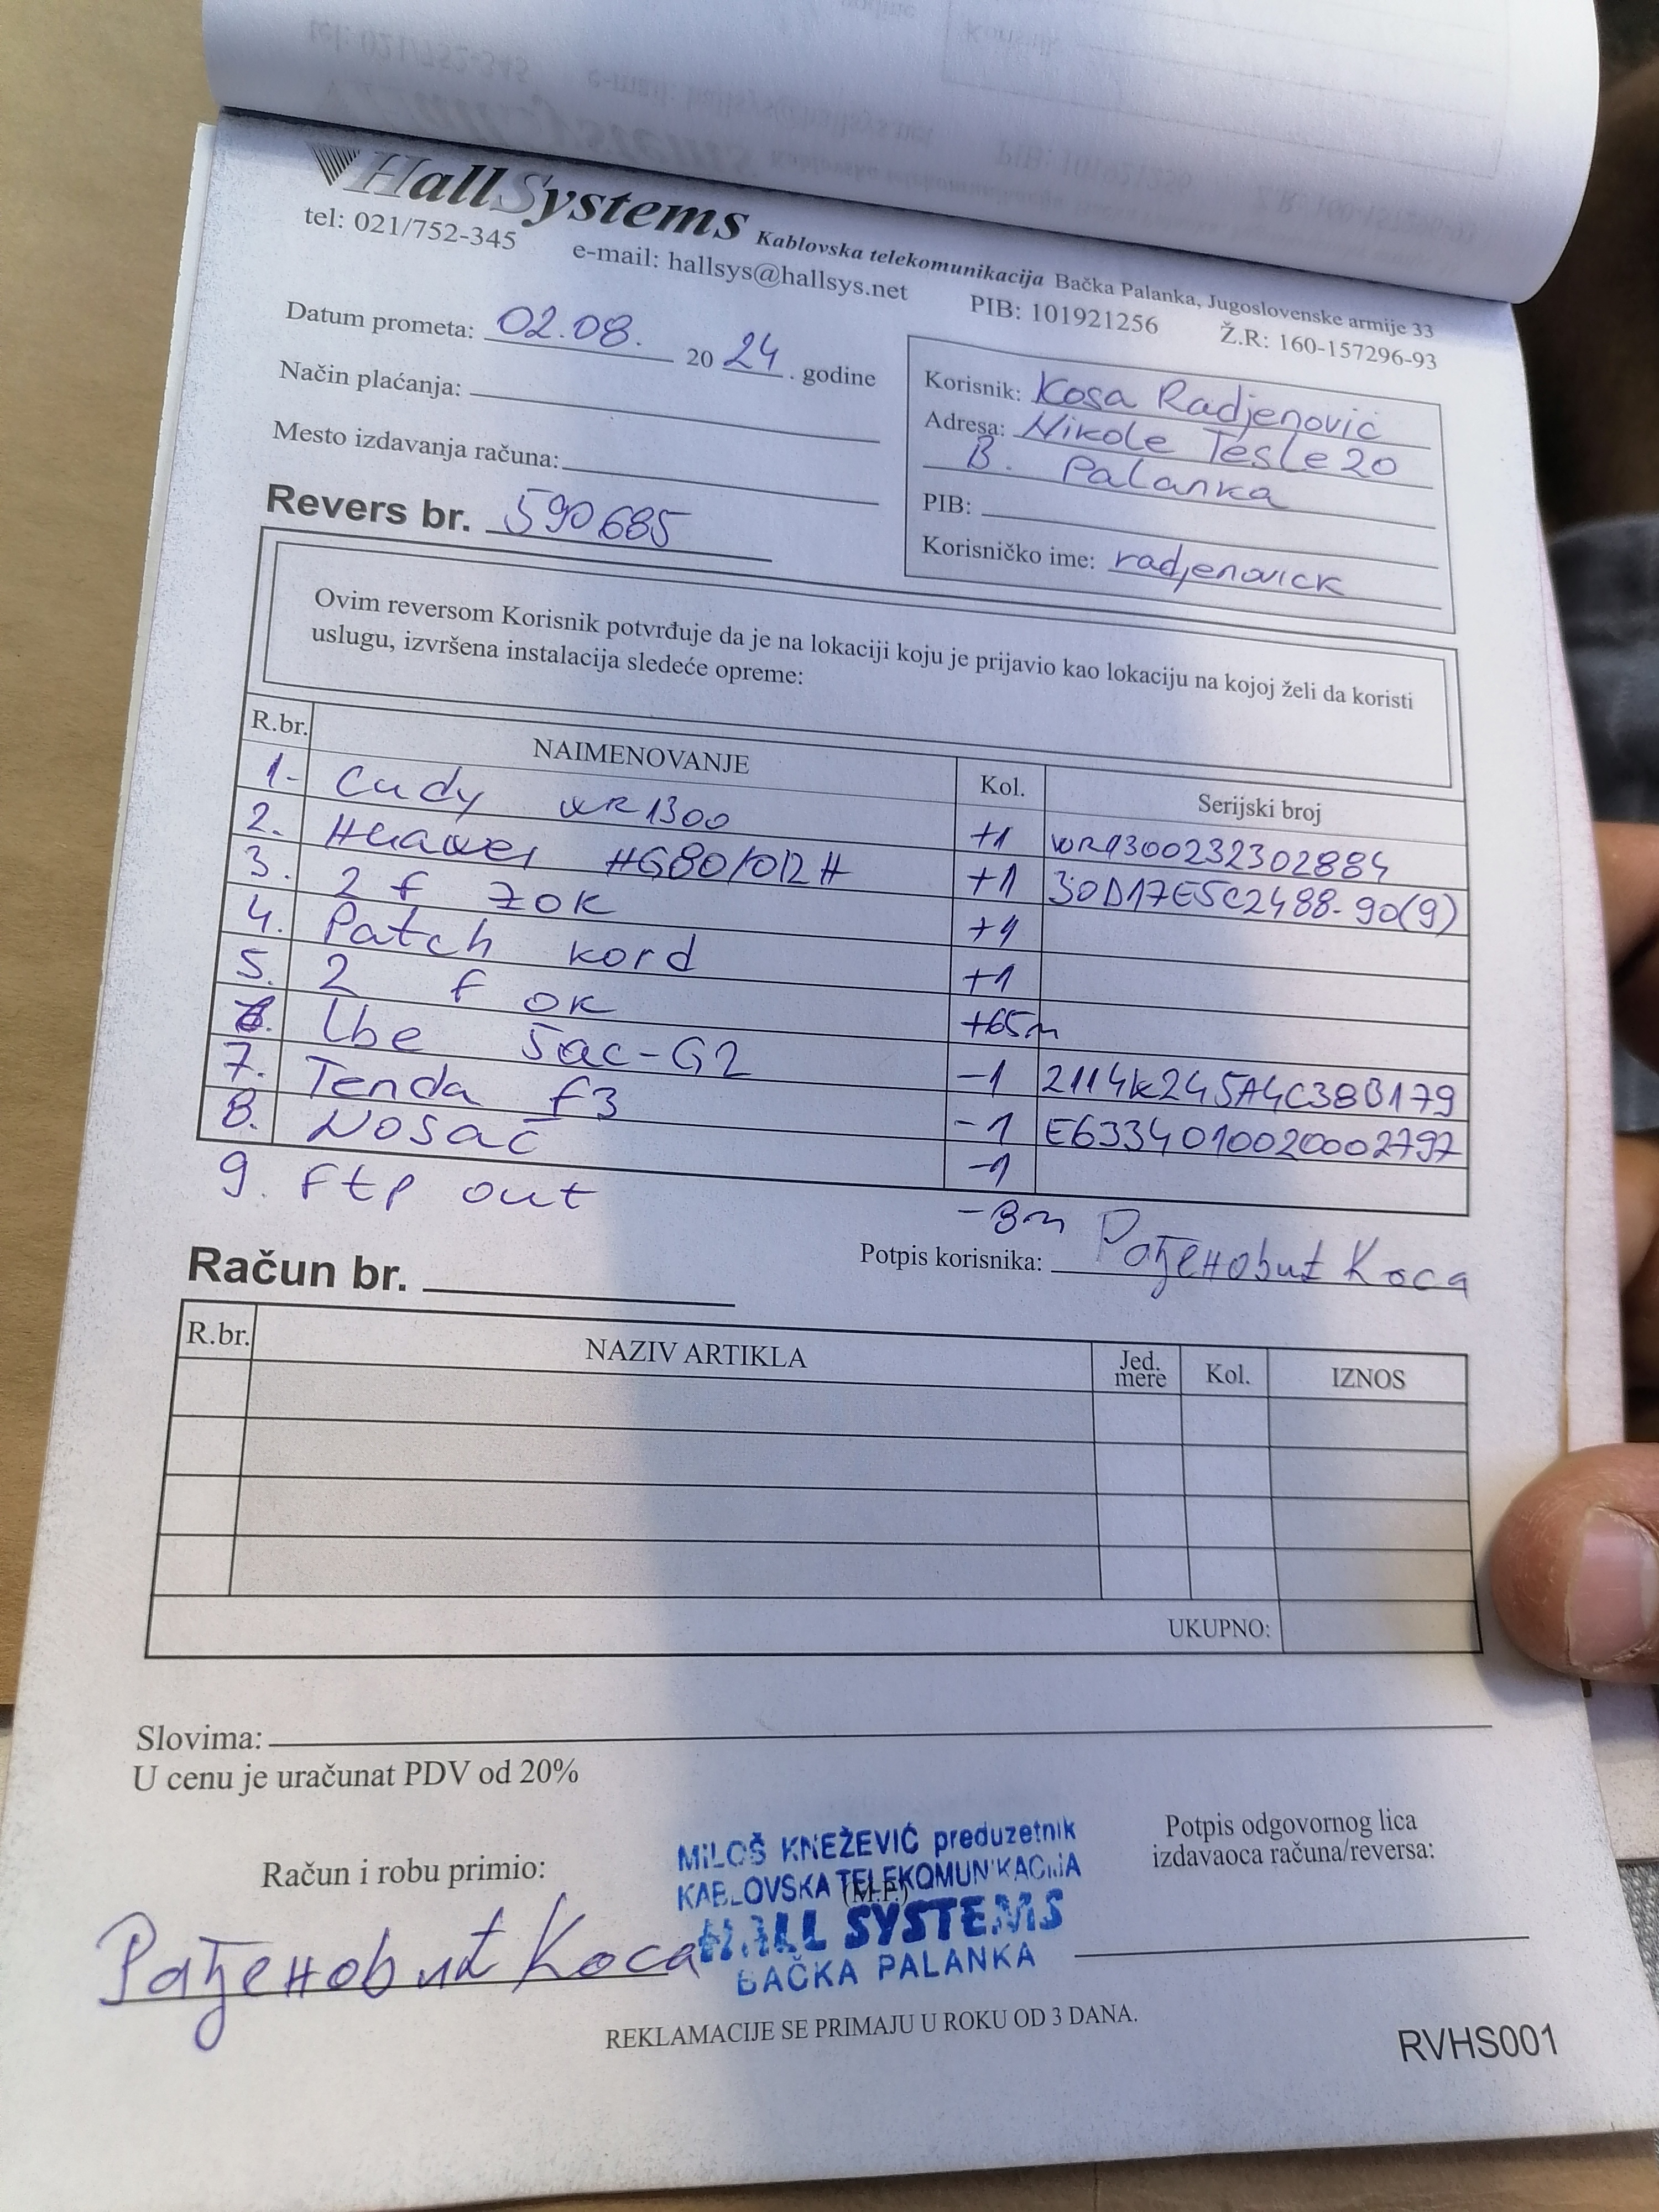 HallSystems Kablovska telekomunikacija Bačka Palanka, Jugoslovenske armije 33
tel: 021/752-345 e-mail: hallsys@hallsys.net PIB: 101921256 Ž.R: 160-157296-93
Datum prometa: 02.08. 20 24 . godine
Način plaćanja:
Mesto izdavanja računa:
Revers br. 590685
Korisnik: Kosa Radjenovic
Adresa: Nikole Tesle 20
B. Palanka
PIB:
Korisničko ime: radjenovick
Ovim reversom Korisnik potvrđuje da je na lokaciji koju je prijavio kao lokaciju na kojoj želi da koristi
uslugu, izvršena instalacija sledeće opreme:
R.br. NAIMENOVANJE Kol. Serijski broj
1. Cudy WR1300 +1 WR1300232302884
2. Huawei HG8010H +1 30D17E5C2488-90(9)
3. 2 f ZOK +1
4. Patch kord +1
5. 2 f OK +65m
6. lbe 5ac-G2 -1 2114K245A4C38B179
7. Tenda f3 -1 E6334010020002797
8. Nosač -1
9. ftp out -8m
Potpis korisnika: Рађеновић Коса
Račun br.
R.br. NAZIV ARTIKLA Jed. mere Kol. IZNOS
UKUPNO:
Slovima:
U cenu je uračunat PDV od 20%
Račun i robu primio:
Рађеновић Коса
MILOŠ KNEŽEVIĆ preduzetnik
KABLOVSKA TELEKOMUNIKACIJA
(M.P.)
HALL SYSTEMS
BAČKA PALANKA
Potpis odgovornog lica
izdavaoca računa/reversa:
REKLAMACIJE SE PRIMAJU U ROKU OD 3 DANA.
RVHS001